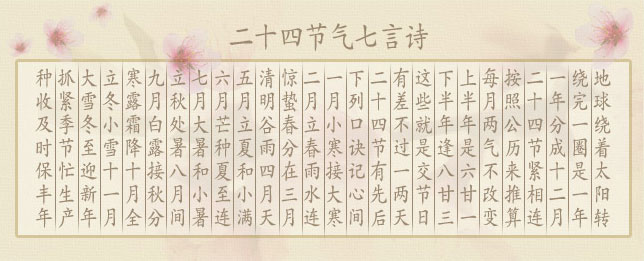 二十四节气七言诗
地球绕着太阳转
绕完一圈是一年
一年分成十二月
二十四节紧相连
按照公历来推算
每月两气不改变
上半年是六廿一
下半年逢八廿三
这些就是交节日
有差不过一两天
二十四节有先后
下列口诀记心间
一月小寒接大寒
二月立春雨水连
惊蛰春分在三月
清明谷雨四月天
五月立夏和小满
六月芒种夏至连
七月大暑和小暑
立秋处暑八月间
九月白露接秋分
寒露霜降十月全
立冬小雪十一月
大雪冬至迎新年
抓紧季节忙生产
种收及时保丰年